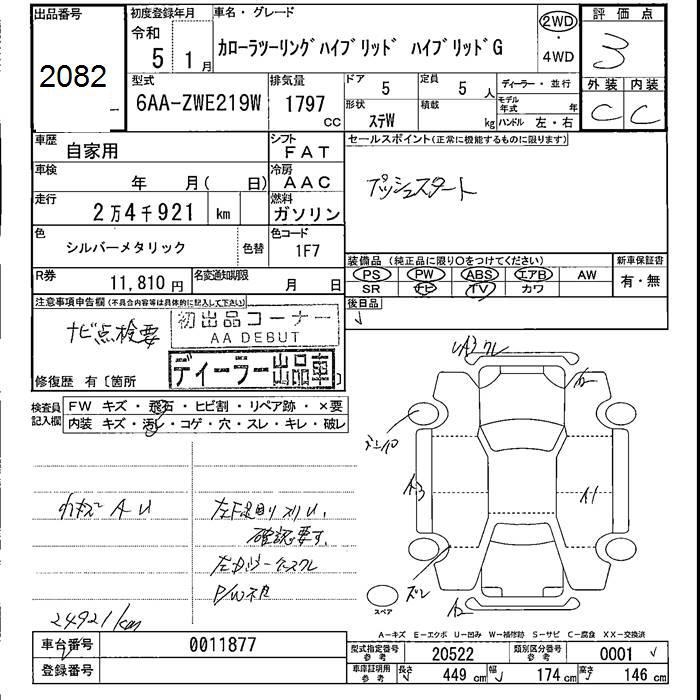 出品番号
2082
初度登録年月
令和
5 1月
車名・グレード
カローラツーリングハイブリッド ハイブリッドG
2WD
・
4WD
評価点
3
外装 内装
C C
型式
6AA-ZWE219W
排気量
1797
cc
ドア
5
定員
5 人
形状
ステW
積載
kg
ディーラー・並行
モデル年式 年
ハンドル 左・右
車歴
自家用
シフト
FAT
車検
年 月( 日)
冷房
AAC
走行
2万4千921 km
燃料
ガソリン
色
シルバーメタリック
色替
色コード
1F7
R券
11,810円
名変通知期限
月 日
セールスポイント(正常に機能するものに限ります)
プッシュスタート
装備品(純正品に限り○をつけてください)
新車保証書
PS PW ABS エアB AW
SR ナビ TV カワ
有・無
後日品
注意事項申告欄(不具合内容等は具体的に記入して下さい)
ナビ点検要
初出品コーナー
AA DEBUT
ディーラー出品車
修復歴 有〔箇所
検査員
記入欄
FW キズ・飛石・ヒビ割・リペア跡・×要
内装 キズ・汚レ・コゲ・穴・スレ・キレ・破レ
小キズ A U
確認要す。
P/W不良
24921km
A3
A1
スペア
A-キズ E-エクボ U-凹み W-補修跡 S-サビ C-腐食 XX-交換済
車台番号
0011877
登録番号
型式指定番号
参考
20522
類別区分番号
参考
0001
車庫証明用
参考
長さ 449 cm 幅 174 cm 高さ 146 cm